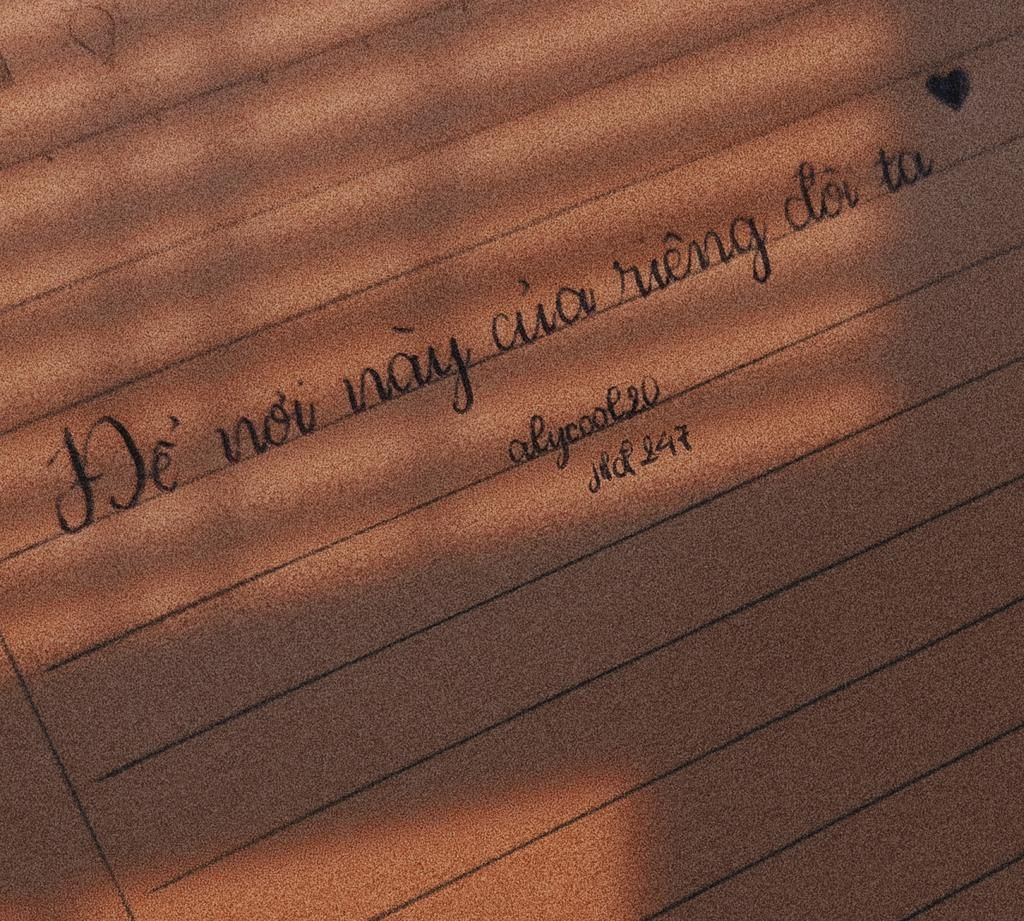 Để nơi này của riêng đôi ta
alycool20